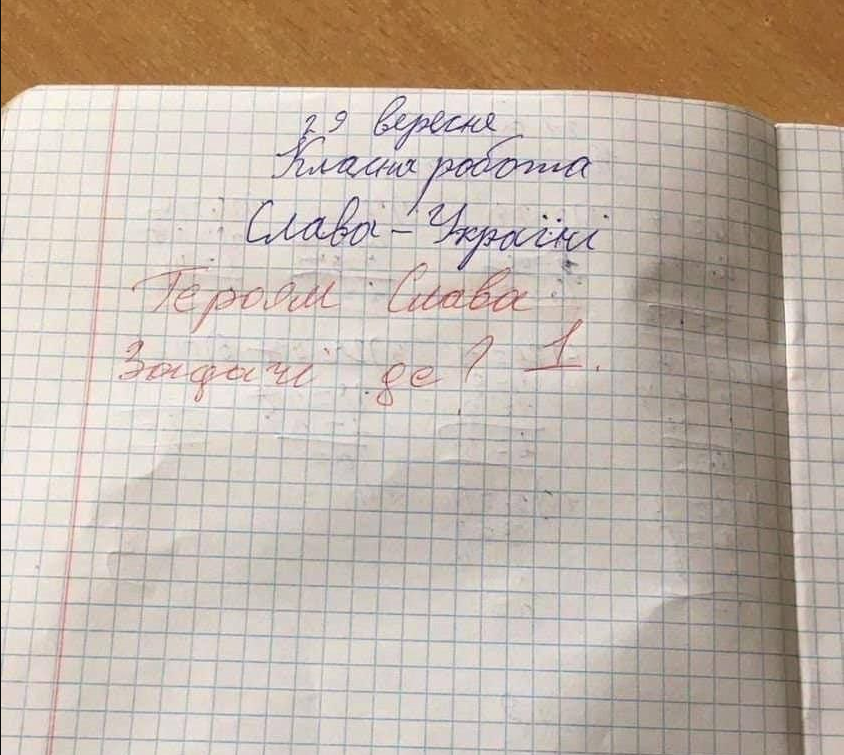 29 вересня
Класна робота
Слава – Україні
Героям Слава
Задачі де? 1.